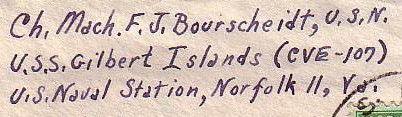 Ch. Mach. F. J. Bourscheidt, U.S.N.
U.S.S. Gilbert Islands (CVE-107)
U.S. Naval Station, Norfolk 11, Va.